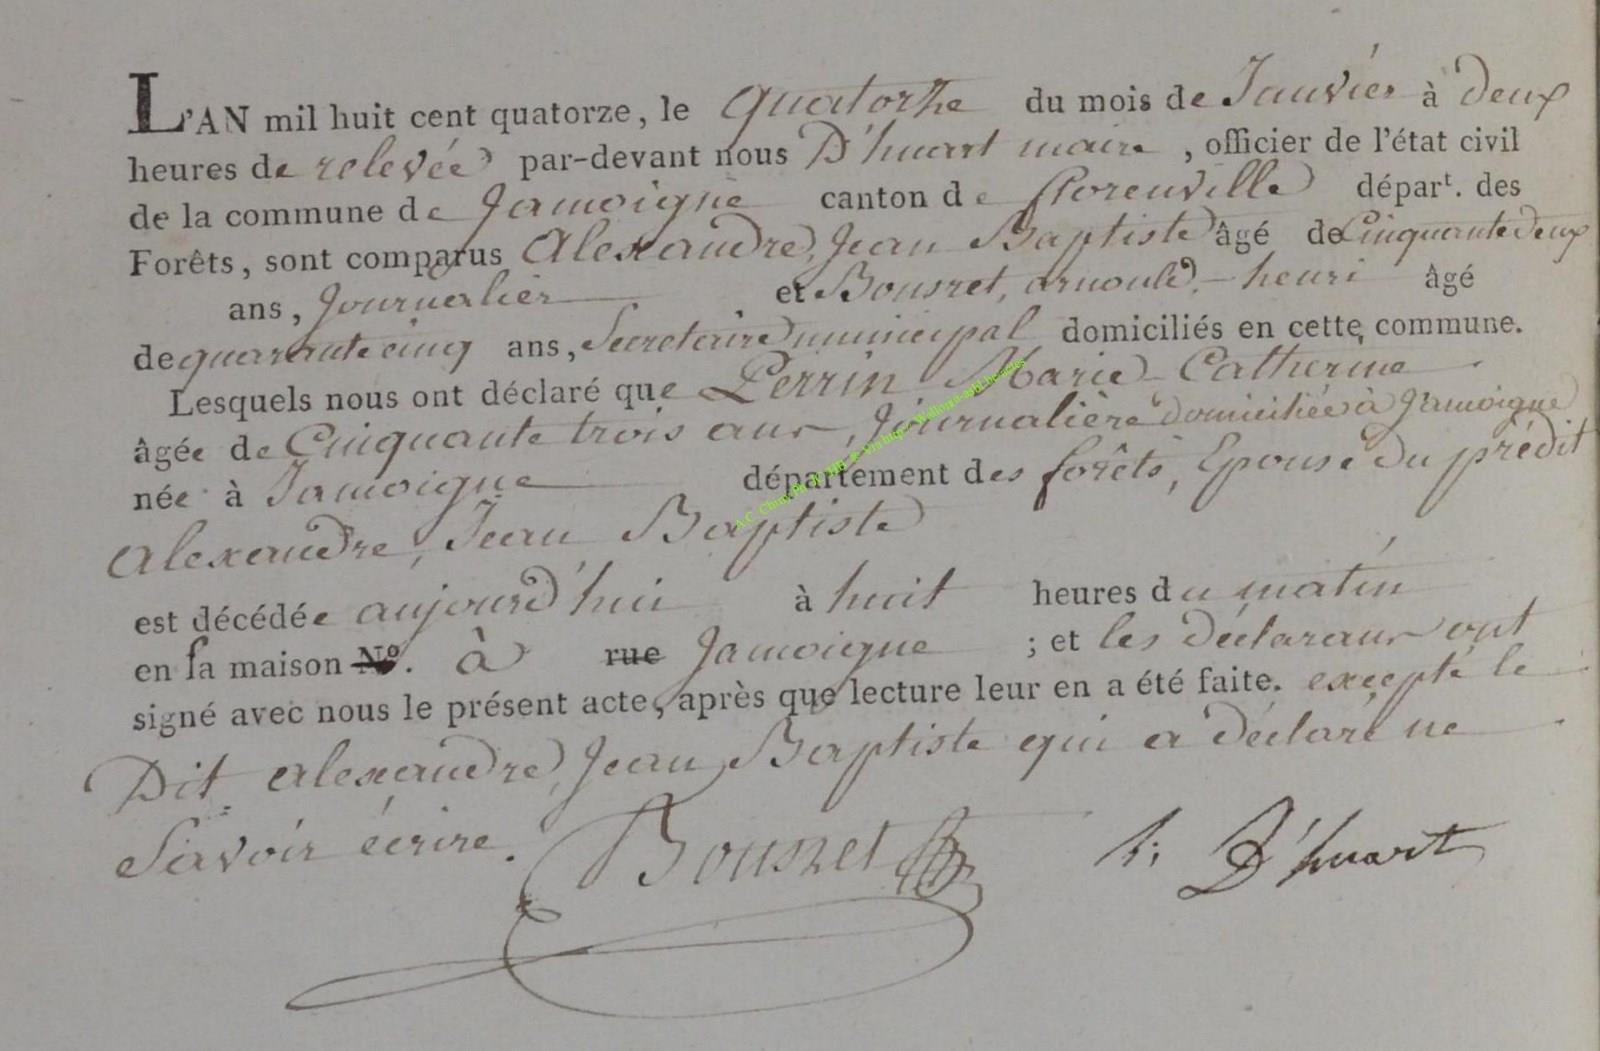 L'AN mil huit cent quatorze, le quatorze du mois de Janvier à deux
heures de relevée par-devant nous D'huart maire, officier de l'état civil
de la commune de Jamoigne canton de florenville départ. des
Forêts, sont comparus Alexandre, Jean Baptiste âgé de Cinquante deux
ans, Journalier et Bousret, arnould-henri âgé
de quarante cinq ans, Secretaire municipal domiciliés en cette commune.
Lesquels nous ont déclaré que Perrin Marie-Catherine
âgée de Cinquante trois ans, Journalière domiciliée à Jamoigne
née à Jamoigne département des forêts, Epouse du prédit
Alexandre, Jean Baptiste
est décédée aujourd'hui à huit heures du matin
en sa maison N°. à rue Jamoigne ; et les déclarans ont
signé avec nous le présent acte, après que lecture leur en a été faite. excepté le
Dit alexandre, Jean Baptiste qui a déclaré ne
Savoir écrire.
Bousret h: D'huart